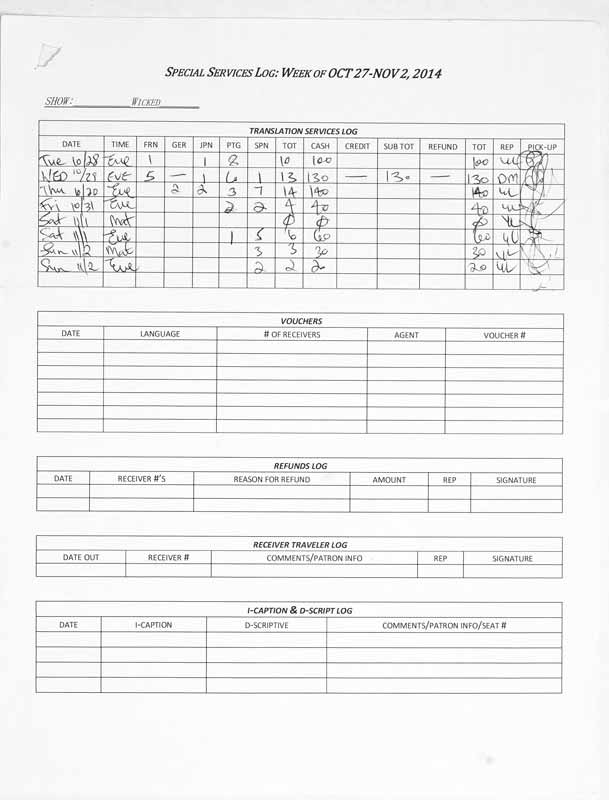 SPECIAL SERVICES LOG: WEEK OF OCT 27-NOV 2, 2014
SHOW: WICKED
TRANSLATION SERVICES LOG
DATE TIME FRN GER JPN PTG SPN TOT CASH CREDIT SUB TOT REFUND TOT REP PICK-UP
Tue 10/28 Eve 1 1 8 10 100 100
WED 10/29 EVE 5 — 1 6 1 13 130 — 130 — 130 DM
Thu 10/20 Eve 2 2 3 7 14 140 140
Fri 10/31 Eve 2 2 4 40 40
Sat 11/1 Mat ϕ ϕ ϕ
Sat 11/1 Eve 1 5 6 60 60
Sun 11/2 Mat 3 3 30 30
Sun 11/2 Eve 2 2 20 20
VOUCHERS
DATE LANGUAGE # OF RECEIVERS AGENT VOUCHER #
REFUNDS LOG
DATE RECEIVER #'S REASON FOR REFUND AMOUNT REP SIGNATURE
RECEIVER TRAVELER LOG
DATE OUT RECEIVER # COMMENTS/PATRON INFO REP SIGNATURE
I-CAPTION & D-SCRIPT LOG
DATE I-CAPTION D-SCRIPTIVE COMMENTS/PATRON INFO/SEAT #